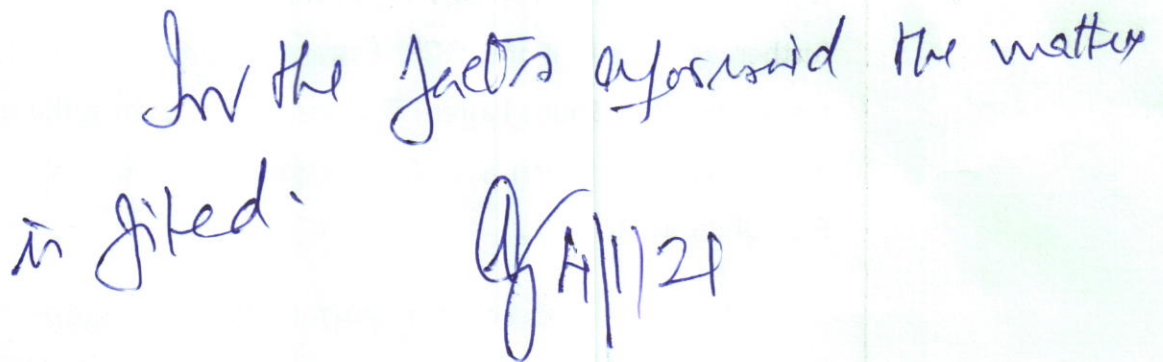 In the facts aforesaid the matter
is filed.
4/1/21